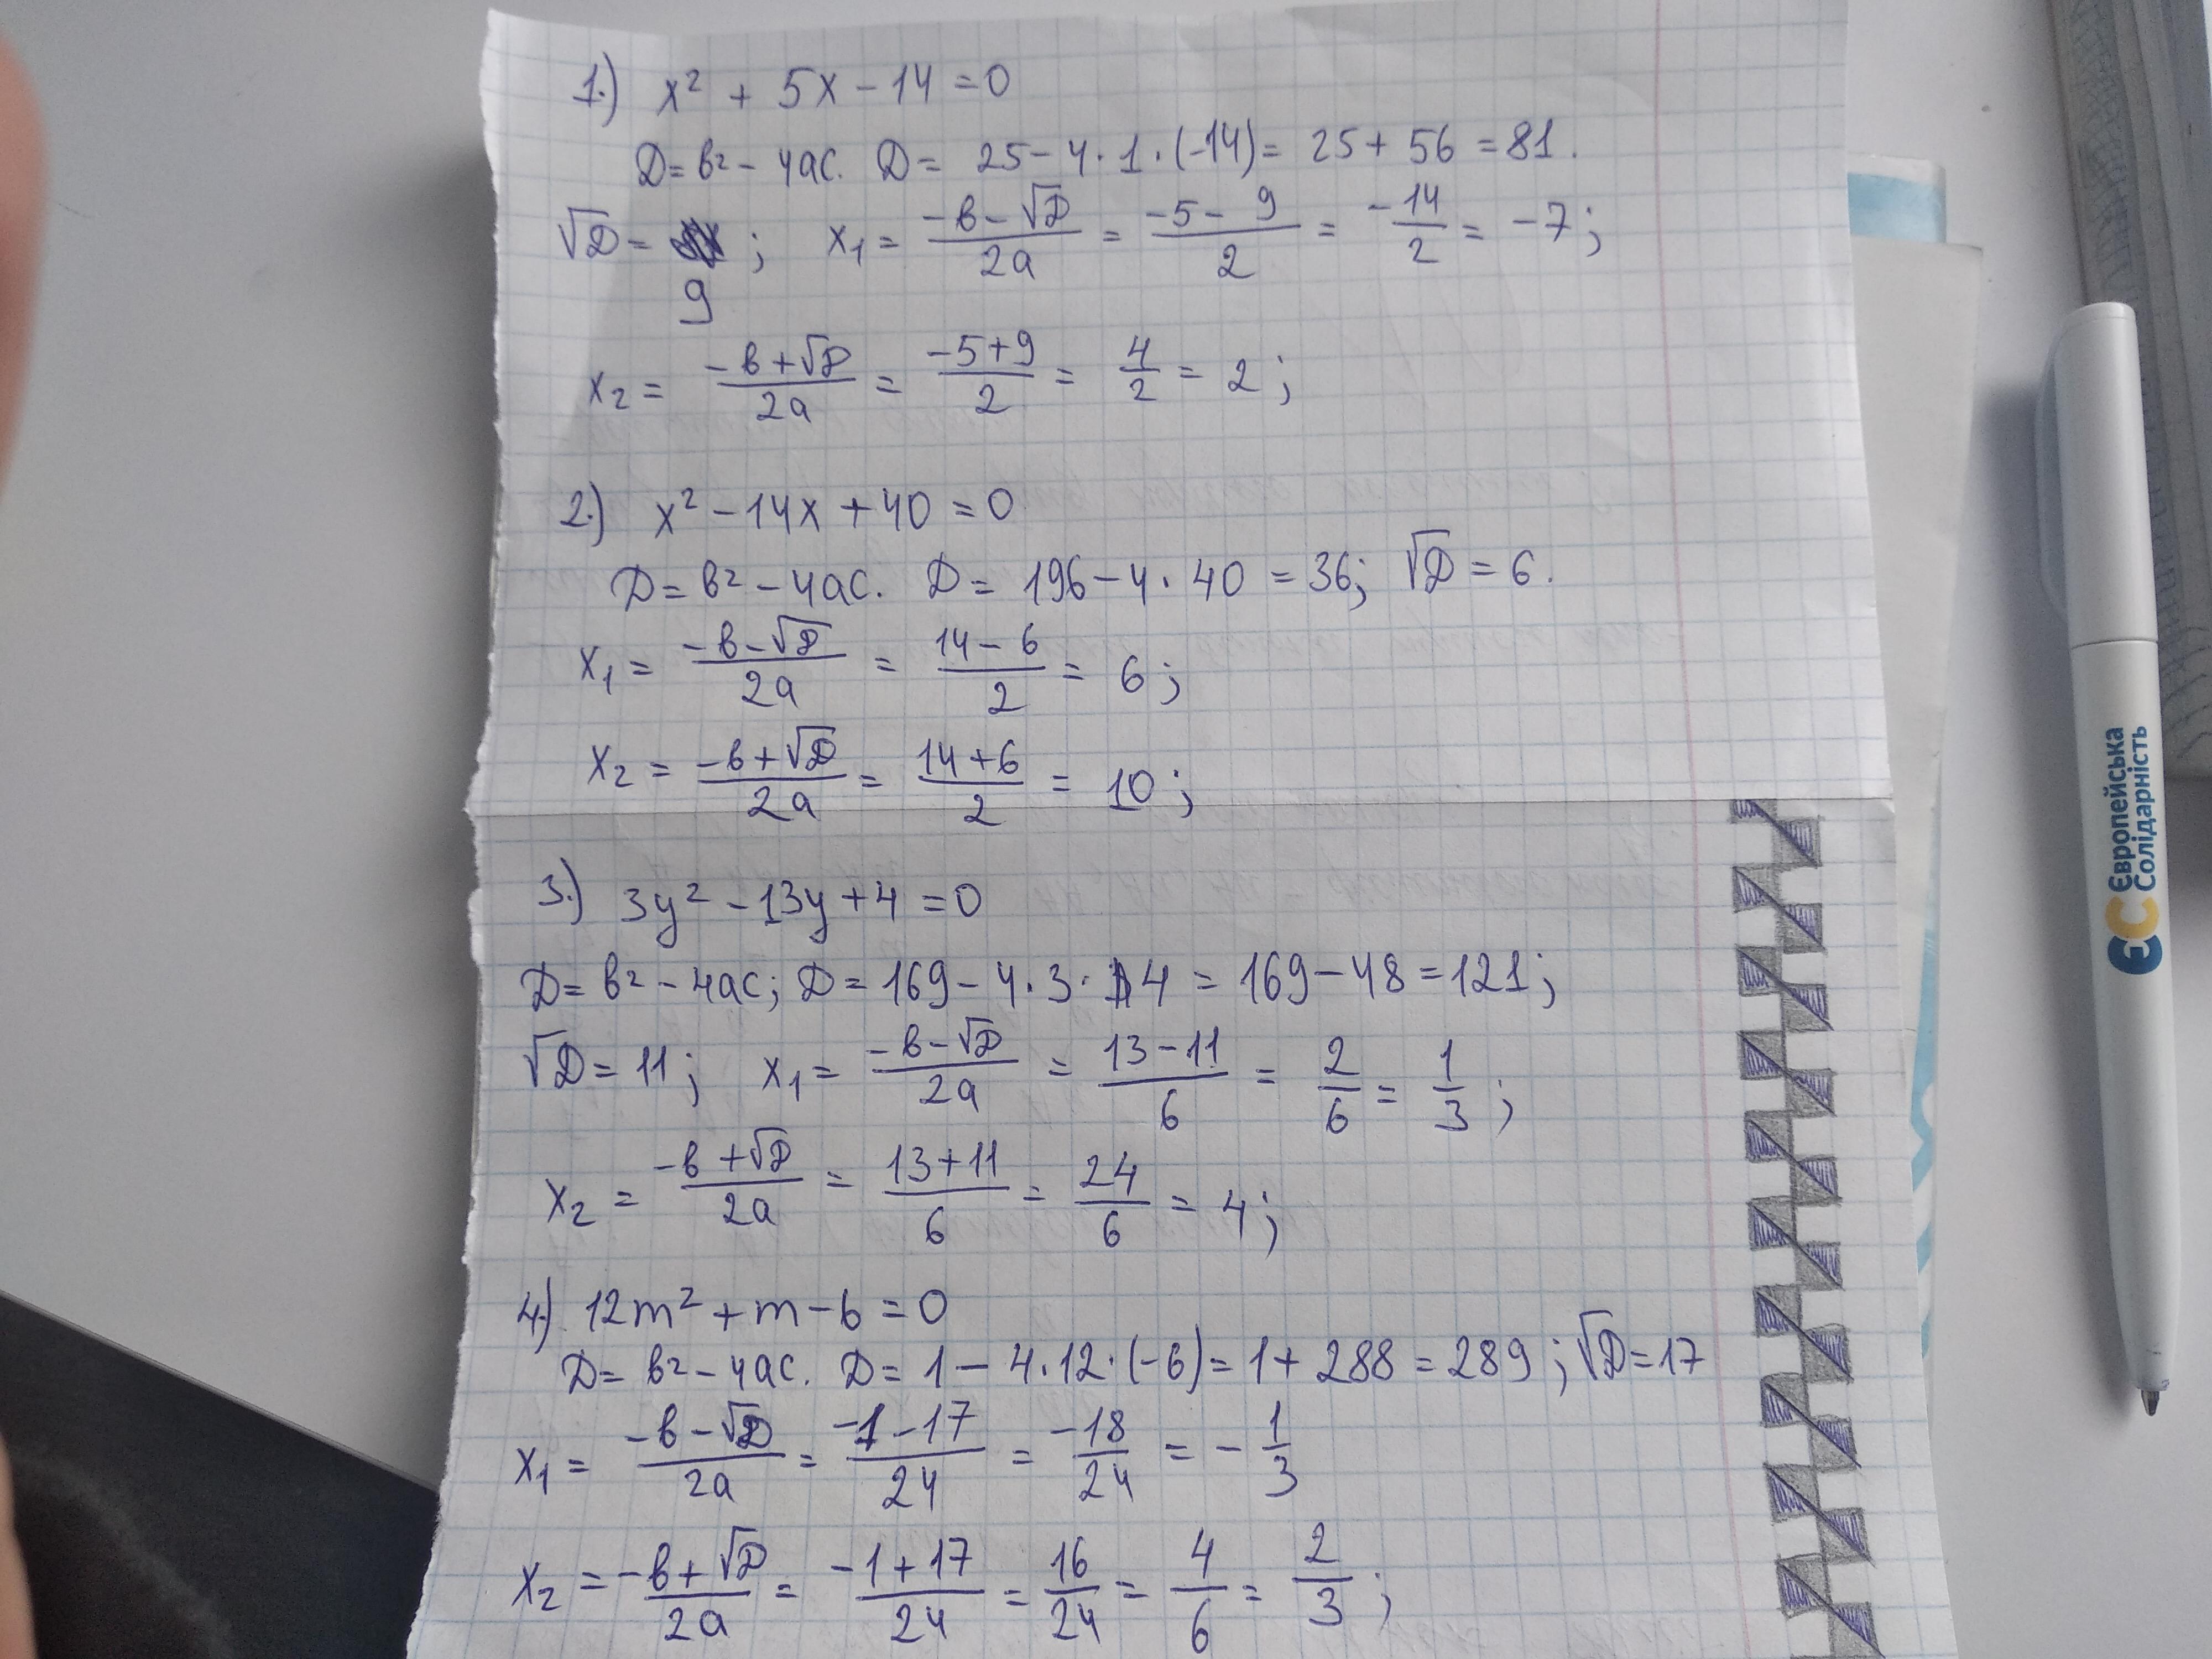 1.) x² + 5x - 14 = 0
D = b² - 4ac. D = 25 - 4 · 1 · (-14) = 25 + 56 = 81.
√D = 9 ; x₁ = (-b - √D)/2a = (-5 - 9)/2 = -14/2 = -7;
x₂ = (-b + √D)/2a = (-5+9)/2 = 4/2 = 2;
2.) x² - 14x + 40 = 0
D = b² - 4ac. D = 196 - 4 · 40 = 36; √D = 6.
x₁ = (-b - √D)/2a = (14 - 6)/2 = 6;
x₂ = (-b + √D)/2a = (14 + 6)/2 = 10;
3.) 3y² - 13y + 4 = 0
D = b² - 4ac; D = 169 - 4 · 3 · 4 = 169 - 48 = 121;
√D = 11; x₁ = (-b - √D)/2a = (13 - 11)/6 = 2/6 = 1/3;
x₂ = (-b + √D)/2a = (13+11)/6 = 24/6 = 4;
4.) 12m² + m - 6 = 0
D = b² - 4ac. D = 1 - 4 · 12 · (-6) = 1 + 288 = 289; √D = 17
x₁ = (-b - √D)/2a = (-1 - 17)/24 = -18/24 = -1/3
x₂ = (-b + √D)/2a = (-1 + 17)/24 = 16/24 = 4/6 = 2/3;
ЄС Європейська
Солідарність